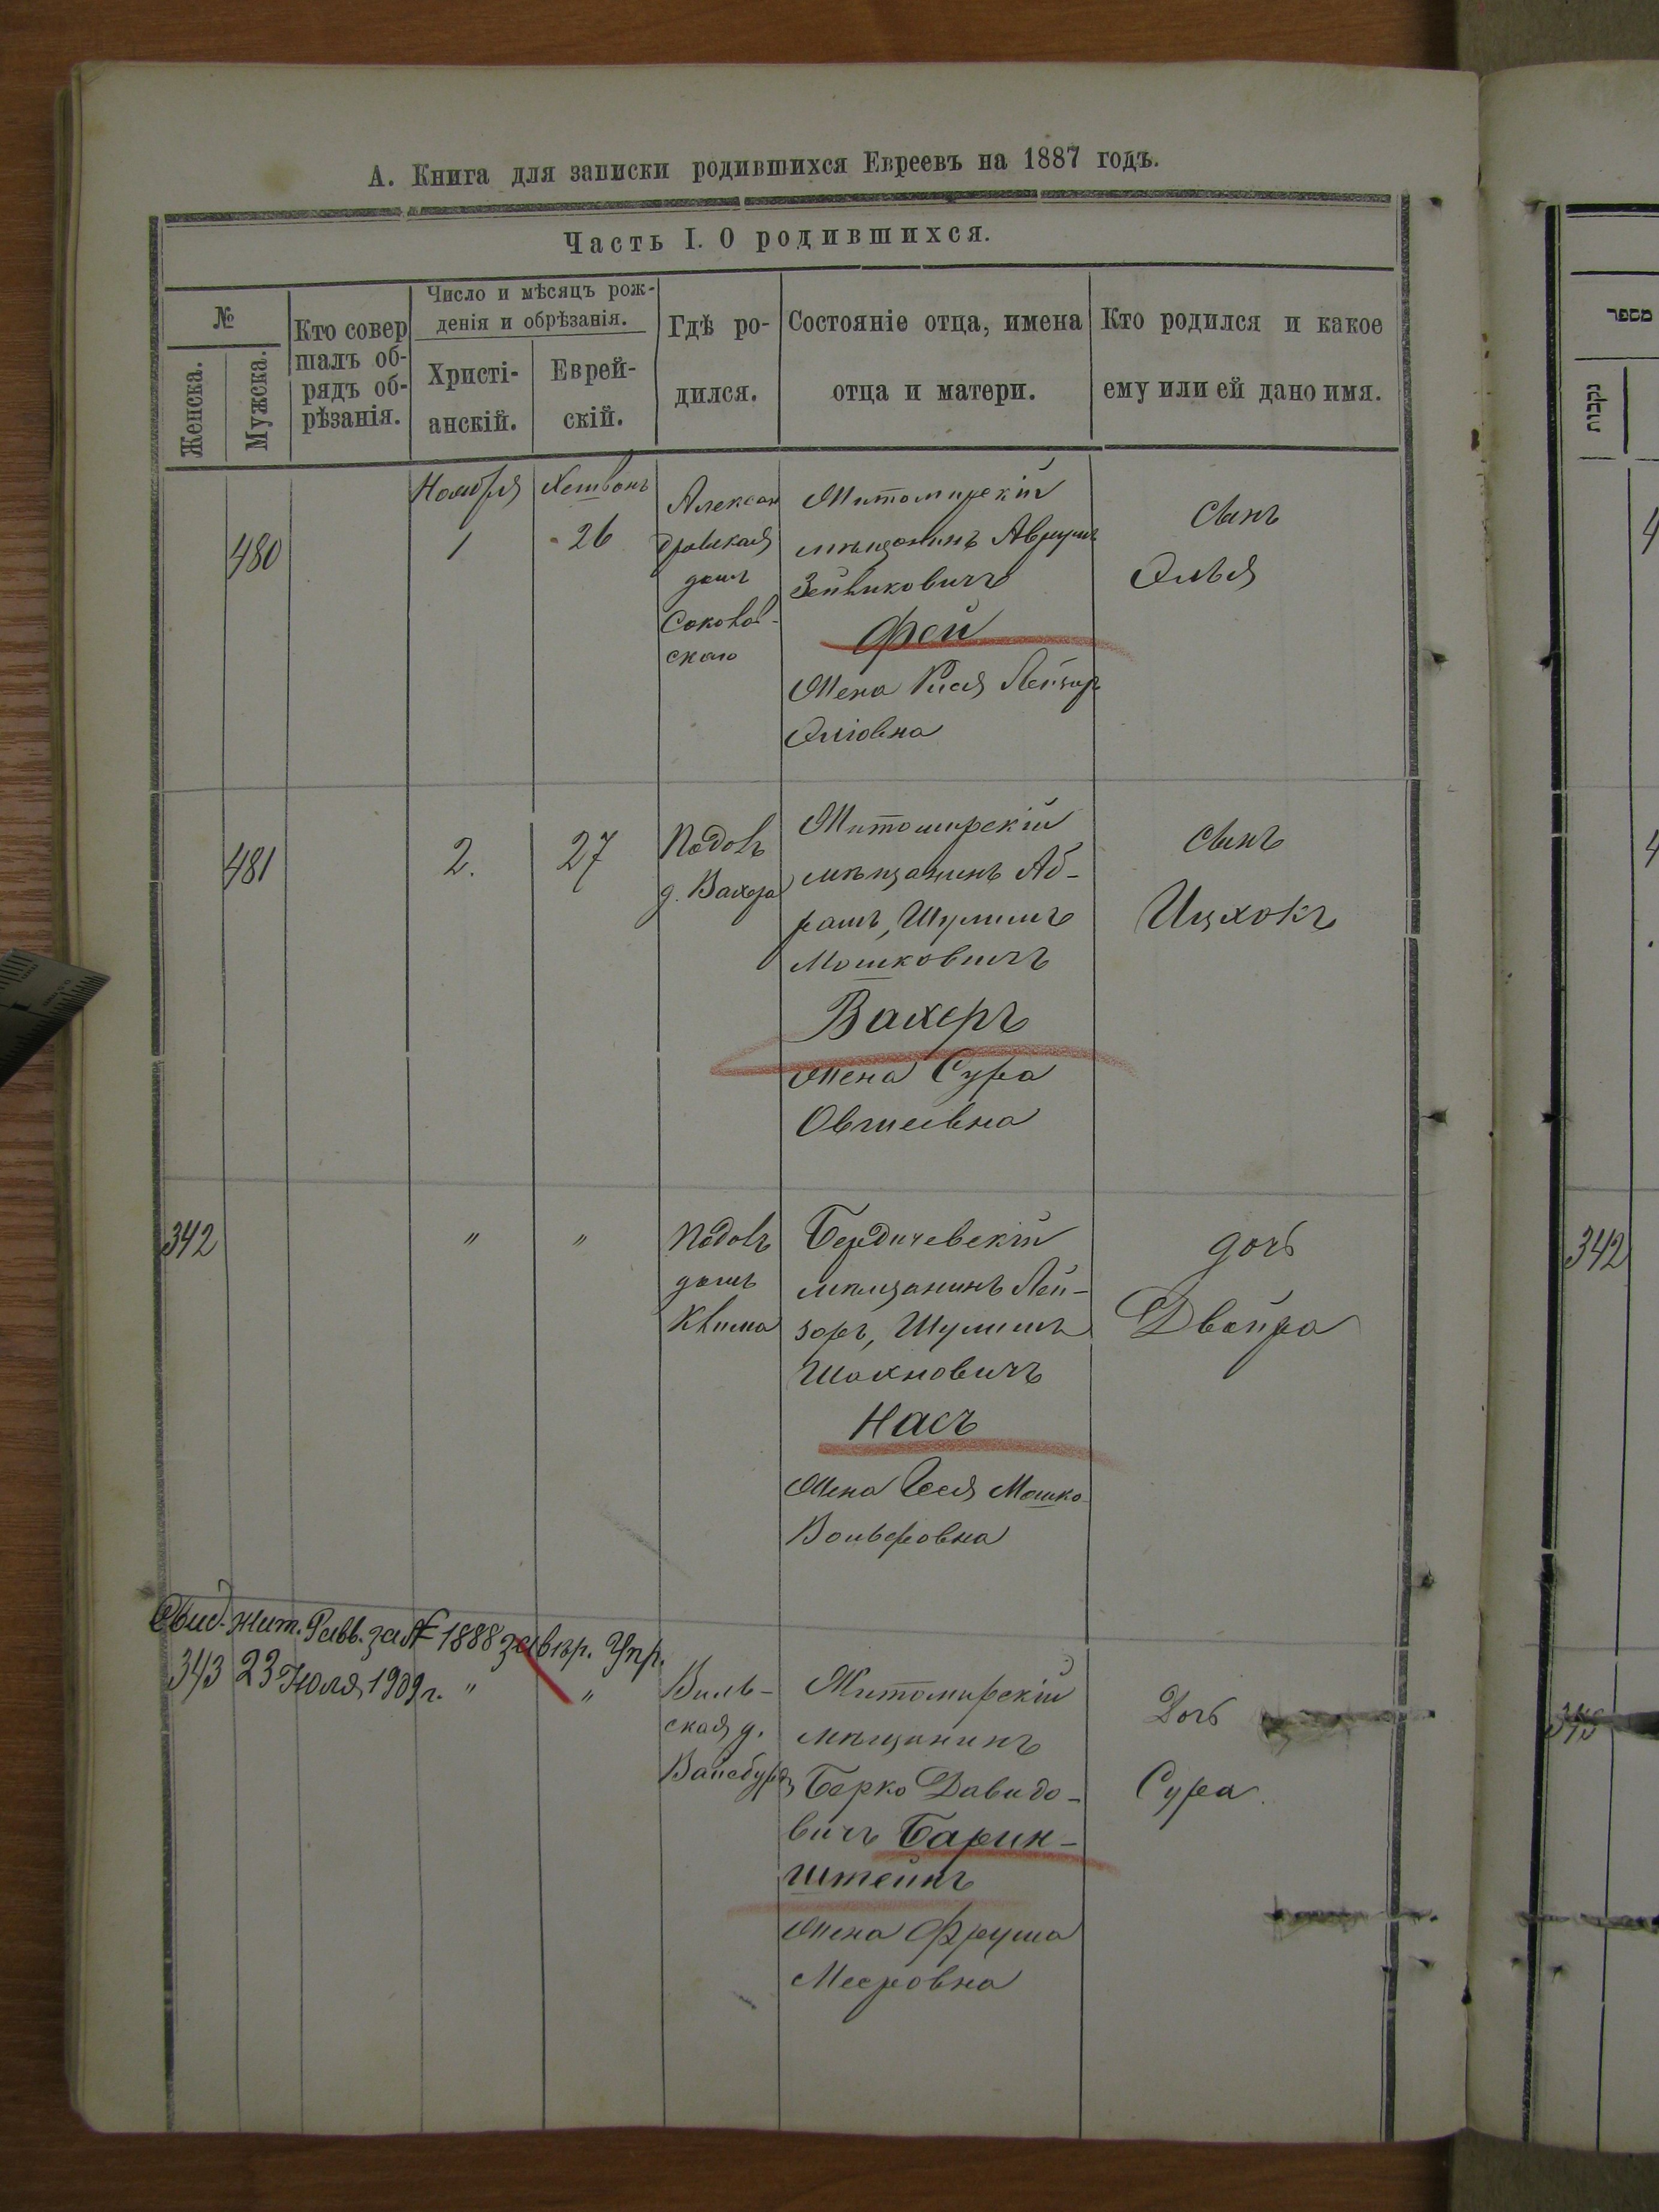 А. Книга для записки родившихся Евреевъ на 1887 годъ.
Часть I. О родившихся.
№
Женска.
Мужска.
Кто совер
шалъ об-
рядъ об-
рѣзанія.
Число и мѣсяцъ рож-
денія и обрѣзанія.
Христі-
анскій.
Еврей-
скій.
Гдѣ ро-
дился.
Состояніе отца, имена
отца и матери.
Кто родился и какое
ему или ей дано имя.
480
Ноября
1
Хешвонъ
26
Алексан
дровская
домъ
Соковов-
скаго
Житомирскій
мѣщанинъ Аврумъ
Зейликовичъ
Фей
Жена Рися Лейзор
Эліовна
сынъ
Элья
481
2.
27
Подолъ
д. Вахера
Житомирскій
мѣщанинъ Аб-
рамъ, Шулимъ
Мошковичъ
Вахеръ
жена Сура
Овшиевна
сынъ
Ицхокъ
342
"
"
Подолъ
домъ
Квита
Бердичевскій
мѣщанинъ Лей-
зоръ, Шулимъ
Шахновичъ
Насъ
Жена Геся Мошко
Вольфовна
дочь
Двойра
Свид. Жит. Равв. за № 1888 завѣр. Упр.
343 23 Июля 1909 г. "
"
Виль-
ская д.
Вайсбурда
Житомирскій
мѣщанинъ
Берко Давидо-
вичъ Барин-
штейнъ
жена Фрума
Мееровна
Дочь
Сура.
מספר
נקבות
4
4
342
343